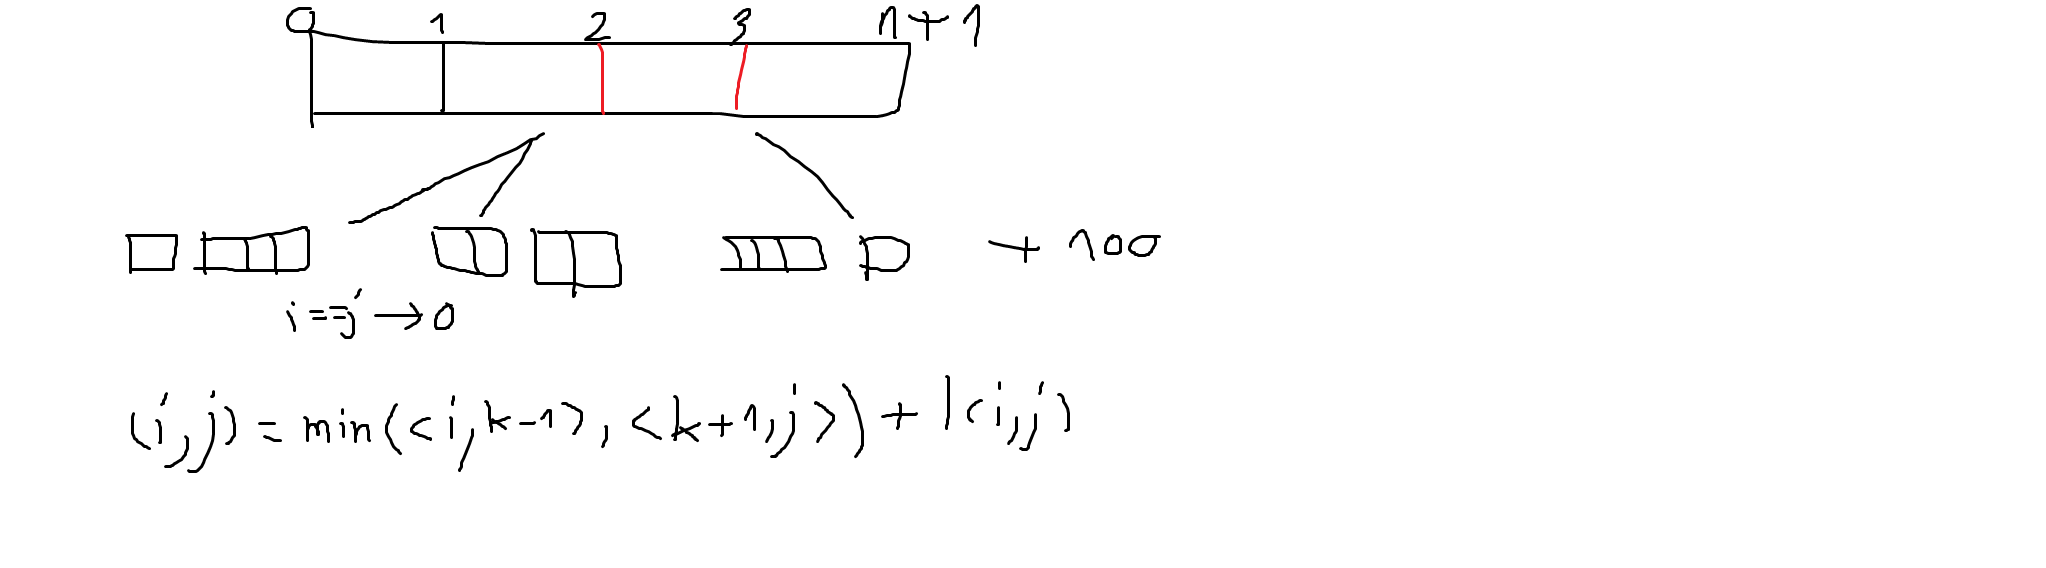 0 1 2 3 n+1
+ 100
i==j → 0
(i,j) = min(<i,k-1>, <k+1,j>) + |(i,j)